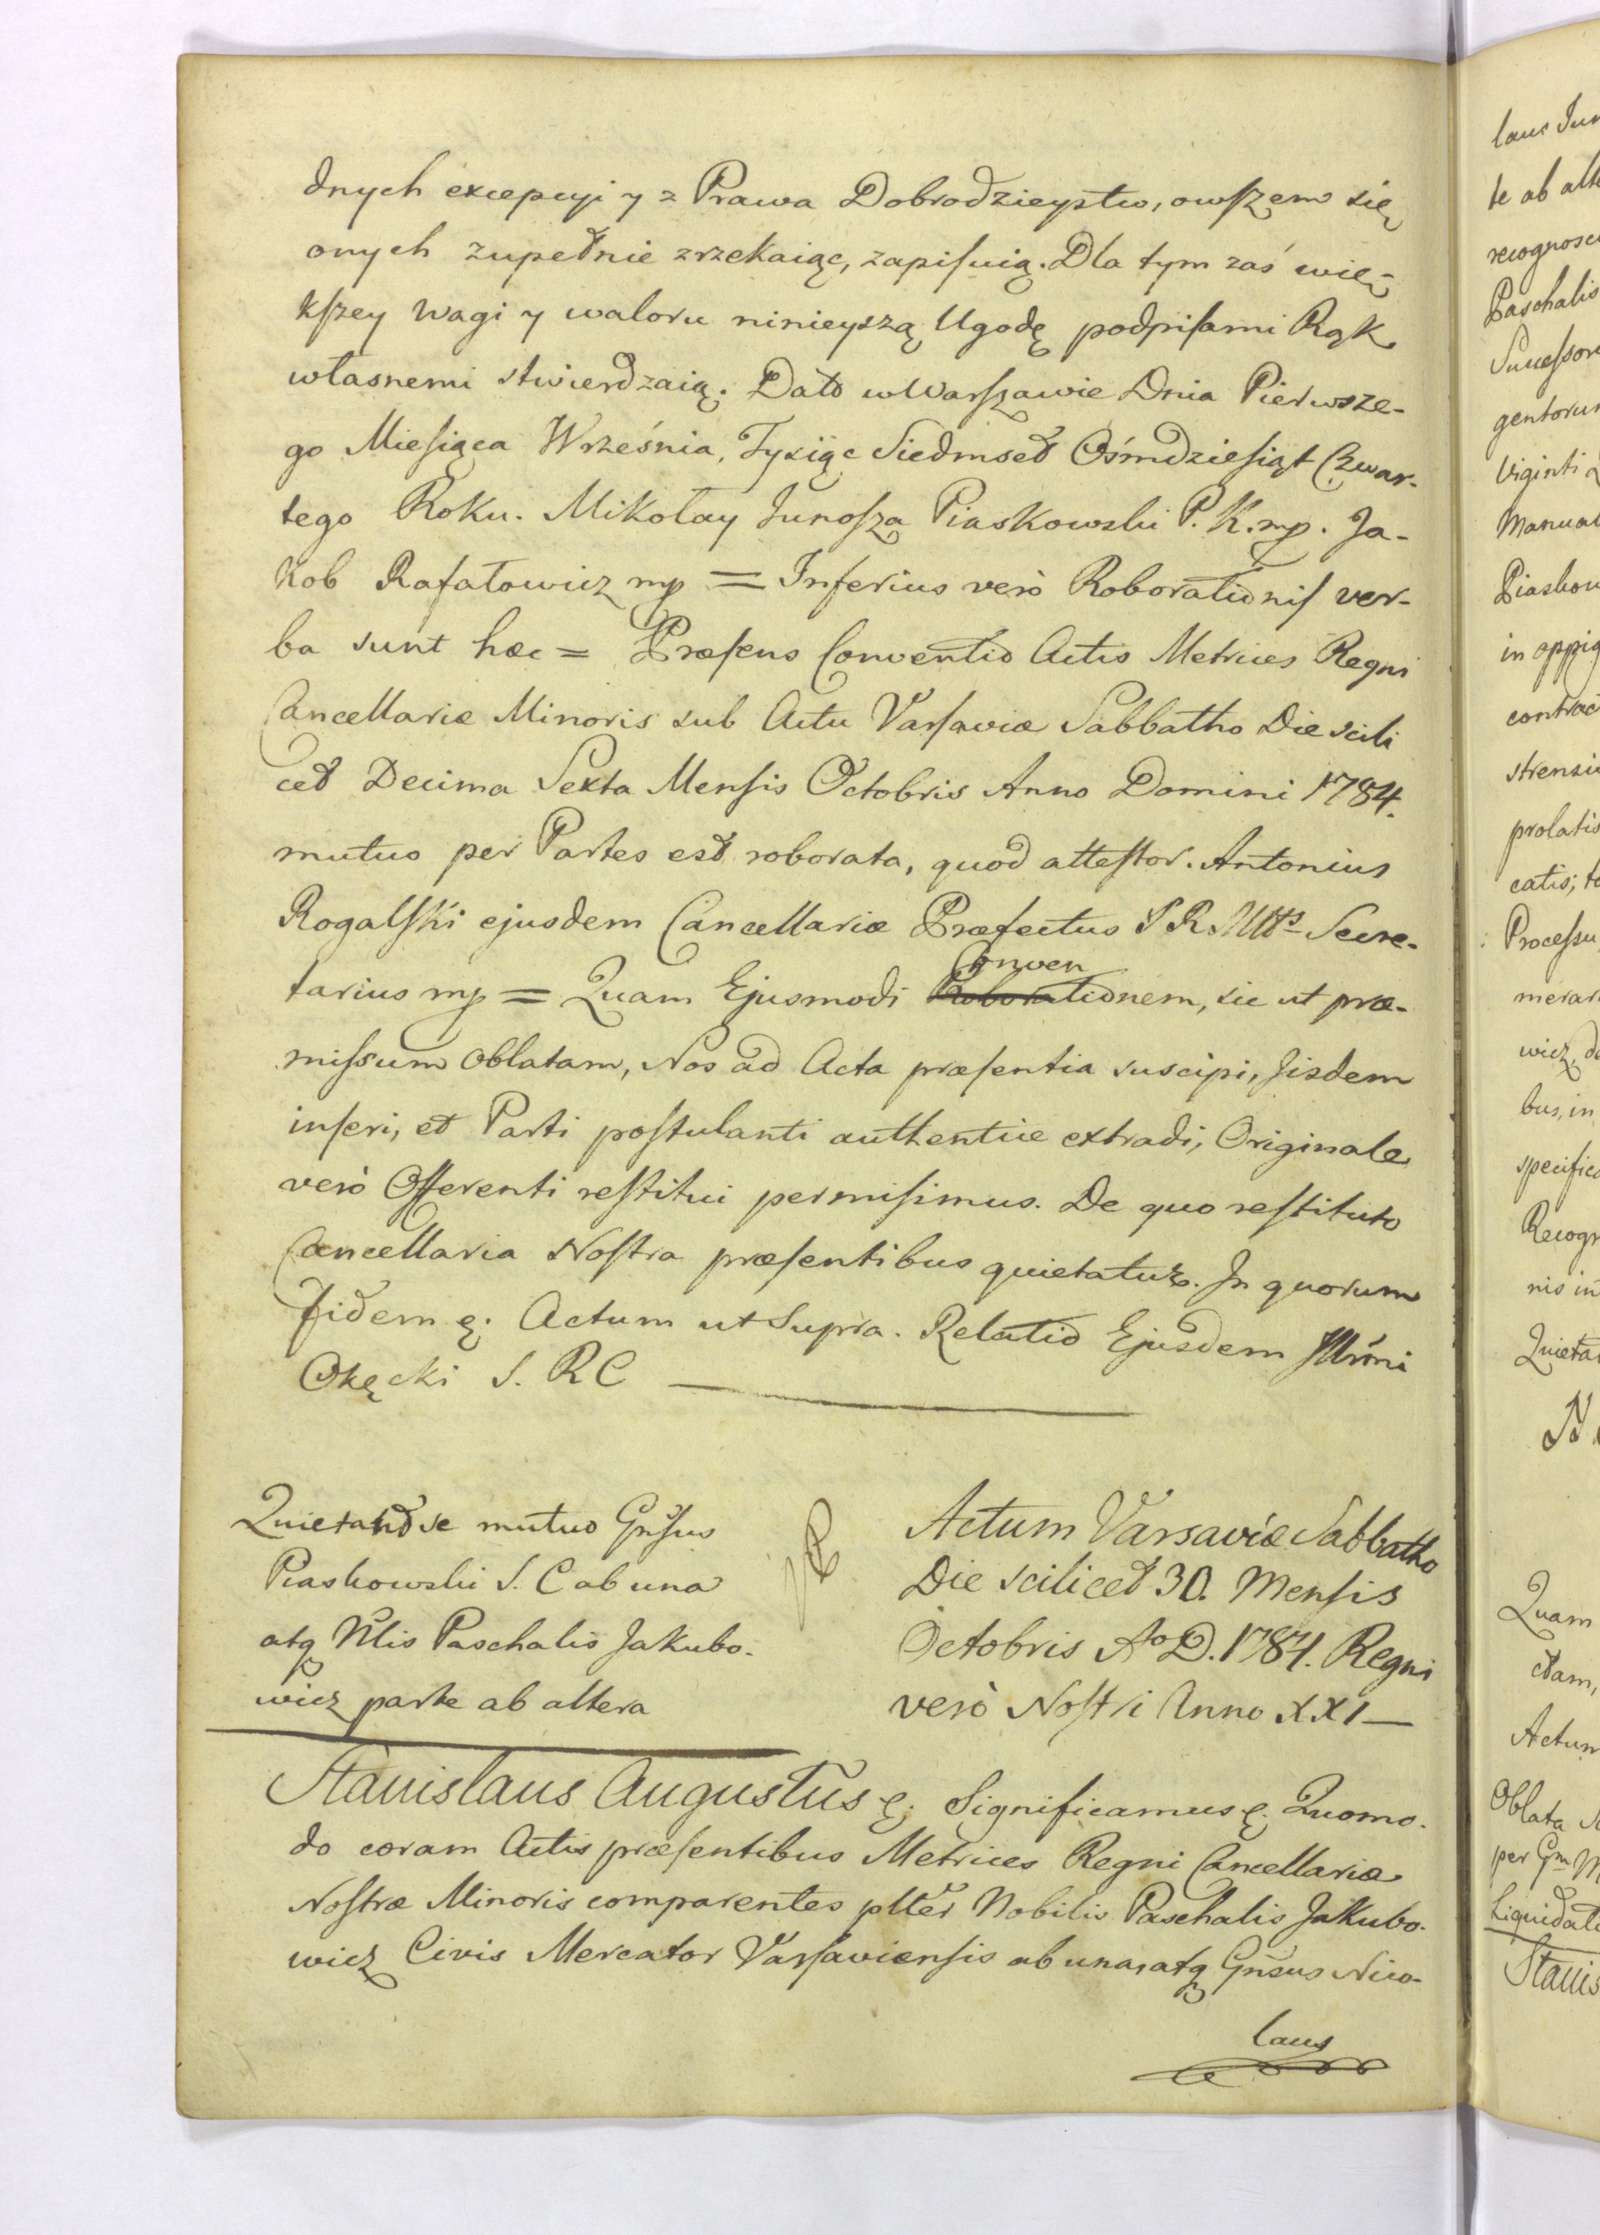 dnych excepcyi y z Prawa Dobrodzieystw, owszem się
onych zupełnie zrzekaiąc, zapisuią. Dla tym zaś wię-
kszey wagi y waloru ninieyszą Ugodę podpisami Rąk
własnemi stwierdzaią. Dato w Warszawie Dnia Pierwsze-
go Miesiąca Września, Tysiąc Siedmset Ośmdziesiąt Czwar-
tego Roku. Mikołay Junosza Piaskowski P. K. mp. Ja-
kob Rafałowicz mp = Inferius verò Roborationis ver-
ba sunt hæc = Præsens Conventio Actis Metrices Regni
Cancellariæ Minoris sub Actu Varsaviæ Sabbatho Die scili
cet Decima Sexta Mensis Octobris Anno Domini 1784.
mutuo per Partes est roborata, quod attestor. Antonius
Rogalski ejusdem Cancellariæ Præfectus S. R. Mtis Secre-
tarius mp = Quam Ejusmodi Conven Roborationem, sic ut præ-
missum Oblatam, Nos ad Acta præsentia suscipi, Iisdem
inseri, et Parti postulanti authentice extradi, Originale
verò Offerenti restitui permisimus. De quo restituto
Cancellaria Nostra præsentibus quietatur. In quorum
fidem ę. Actum ut Supra. Relatio Ejusdem Illmi
Okęcki S. R C
Quietant se mutuo Gnsus
Piaskowski S. C ab una
atq Nblis Paschalis Jakubo-
wicz parte ab altera
Actum Varsaviæ Sabbatho
Die scilicet 30. Mensis
Octobris Ao D. 1784. Regni
verò Nostri Anno XXI
Stanislaus Augustus ę. Significamus ę. Quomo-
do coram Actis præsentibus Metrices Regni Cancellariæ
Nostræ Minoris comparentes plter Nobilis Paschalis Jakubo-
wicz Civis Mercator Varsaviensis ab una, atq Gnsus Nico-
laus
laus Jun
te ab alte
recognosc
Paschalis
Successor
gentorum
Viginti
Manual
Piaskow
in oppig
contrac
strensi
prolatis
catis; t
Processu
merar
wicz, d
bus, in
specific
Recogn
nis in
Quieta
Quam
ctam,
Actum
Oblata
per Gm M
Liquidat
Stanis